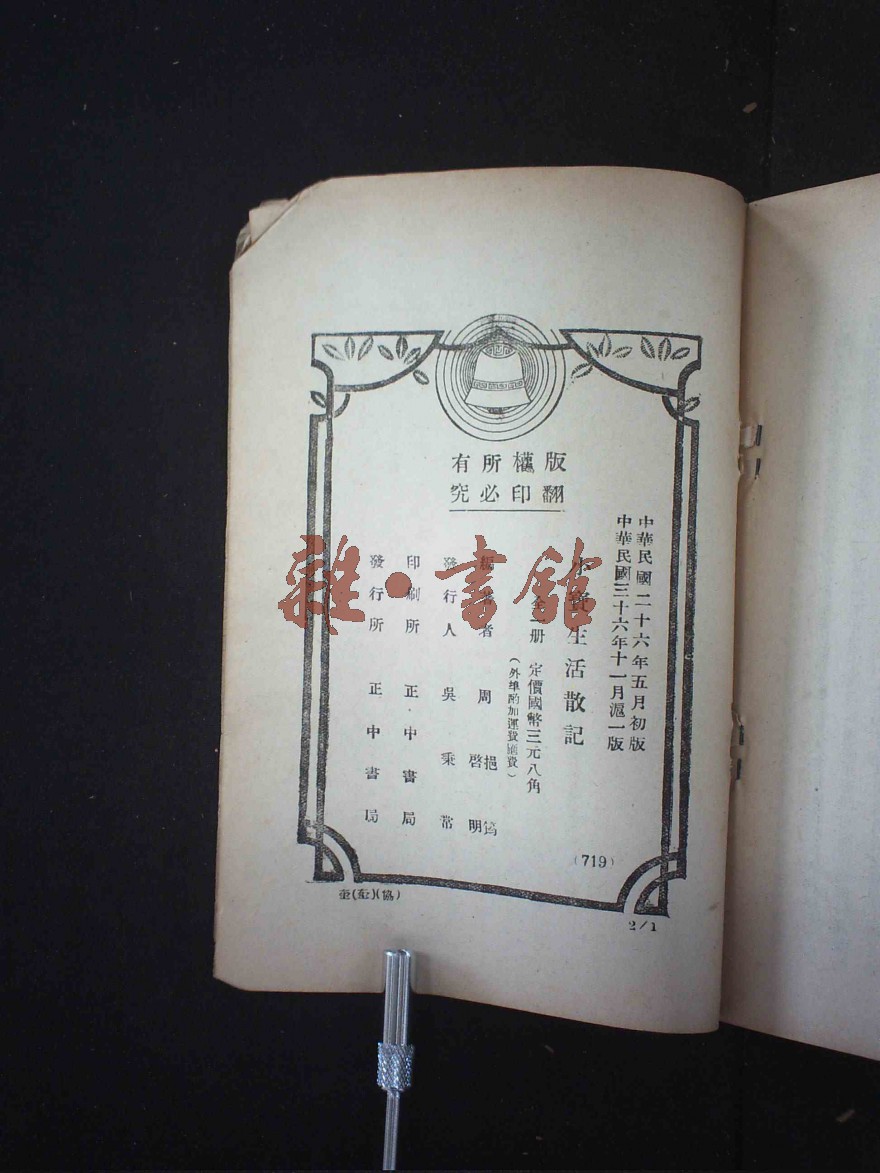 版權所有
翻印必究
中華民國二十六年五月初版
中華民國三十六年十一月滬一版
小寶生活散記
全一册 定價國幣三元八角
(外埠酌加運費匯費)
編著者 周
啓明
發行人 吳秉常
印刷所 正中書局
發行所 正中書局
(719)
2/1
雜·書館